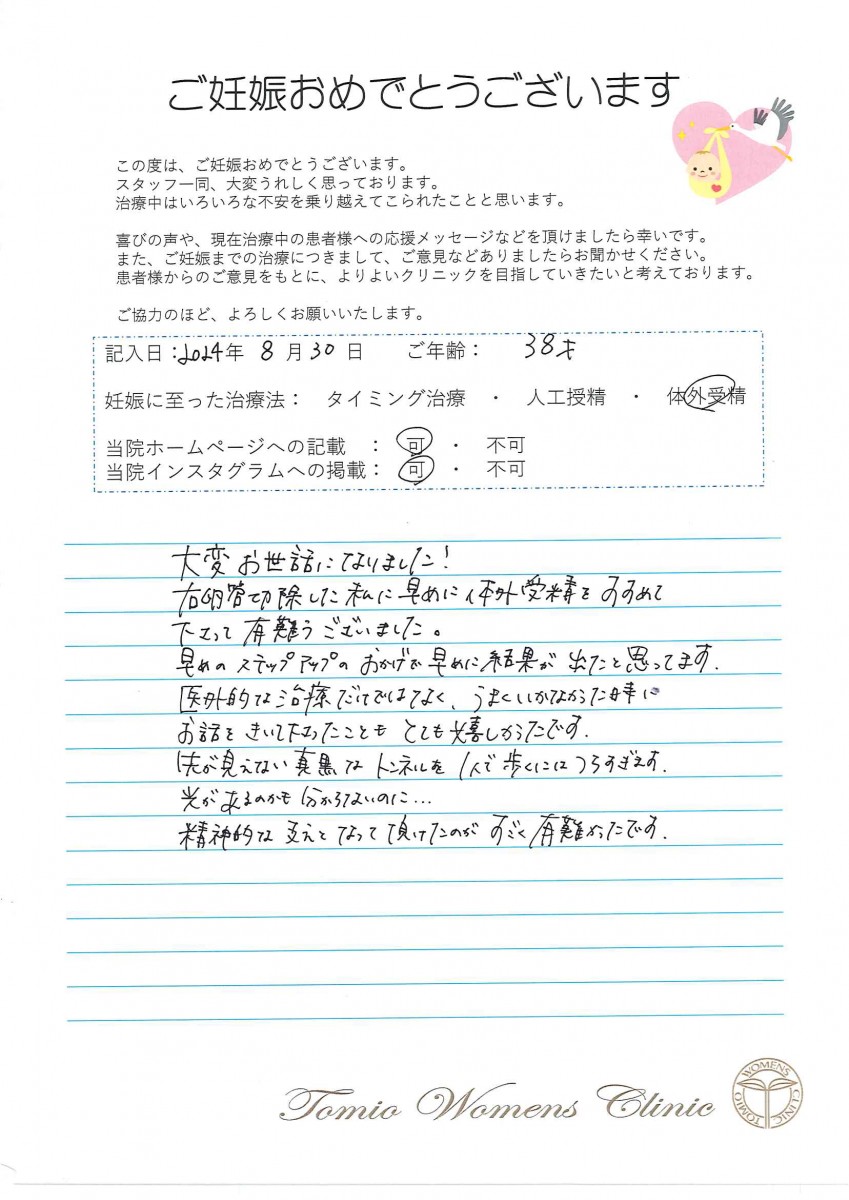 ご妊娠おめでとうございます
この度は、ご妊娠おめでとうございます。
スタッフ一同、大変うれしく思っております。
治療中はいろいろな不安を乗り越えてこられたことと思います。
喜びの声や、現在治療中の患者様への応援メッセージなどを頂けましたら幸いです。
また、ご妊娠までの治療につきまして、ご意見などありましたらお聞かせください。
患者様からのご意見をもとに、よりよいクリニックを目指していきたいと考えております。
ご協力のほど、よろしくお願いいたします。
記入日：2024年 8 月 30 日 ご年齢： 38才
妊娠に至った治療法： タイミング治療 ・ 人工授精 ・ 体外受精
当院ホームページへの記載 ： 可 ・ 不可
当院インスタグラムへの掲載： 可 ・ 不可
大変お世話になりました！
右卵管切除した私に早めに体外受精をすすめて
下さって有難うございました。
早めのステップアップのおかげで早めに結果が出たと思ってます.
医外的な治療だけではなく、うまくいかなかった時に
お話をきいて下さったことも とても嬉しかったです.
先が見えない真黒なトンネルを1人で歩くにはつらすぎます.
光があるのかも分からないのに…
精神的な支えとなって頂けたのがすごく有難かったです.
Tomio Womens Clinic
TOMIO WOMENS CLINIC